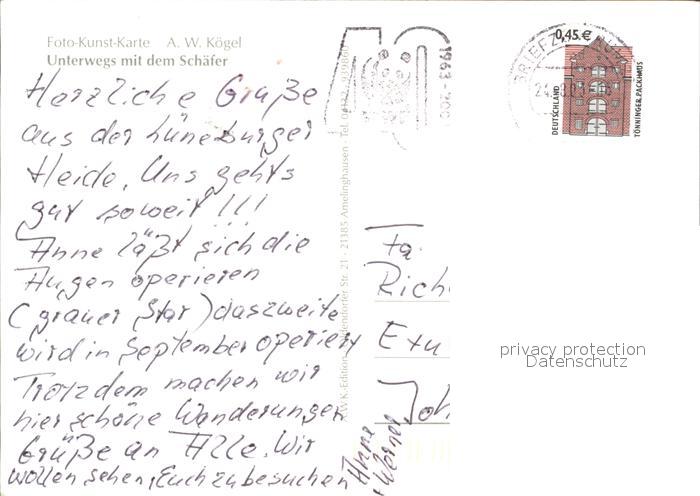 Foto-Kunst-Karte A. W. Kögel
Unterwegs mit dem Schäfer
Herzliche Grüße
aus der Lüneburger
Heide. Uns gehts
gut soweit!!!
Anne läßt sich die
Augen operieren
(grauer Star) das zweite
wird in September operiert
Trotzdem machen wir
hier schöne Wanderungen
Grüße an Alle. Wir
wollen sehen, Euch zu besuchen
Anne
+ Werner
21385 Amelinghausen
40
1963-200
BRIEFZ
0,45 €
DEUTSCHLAND
TÖNNINGER PACKHAUS
Fa.
Rich
Extu
Joh
privacy protection
Datenschutz